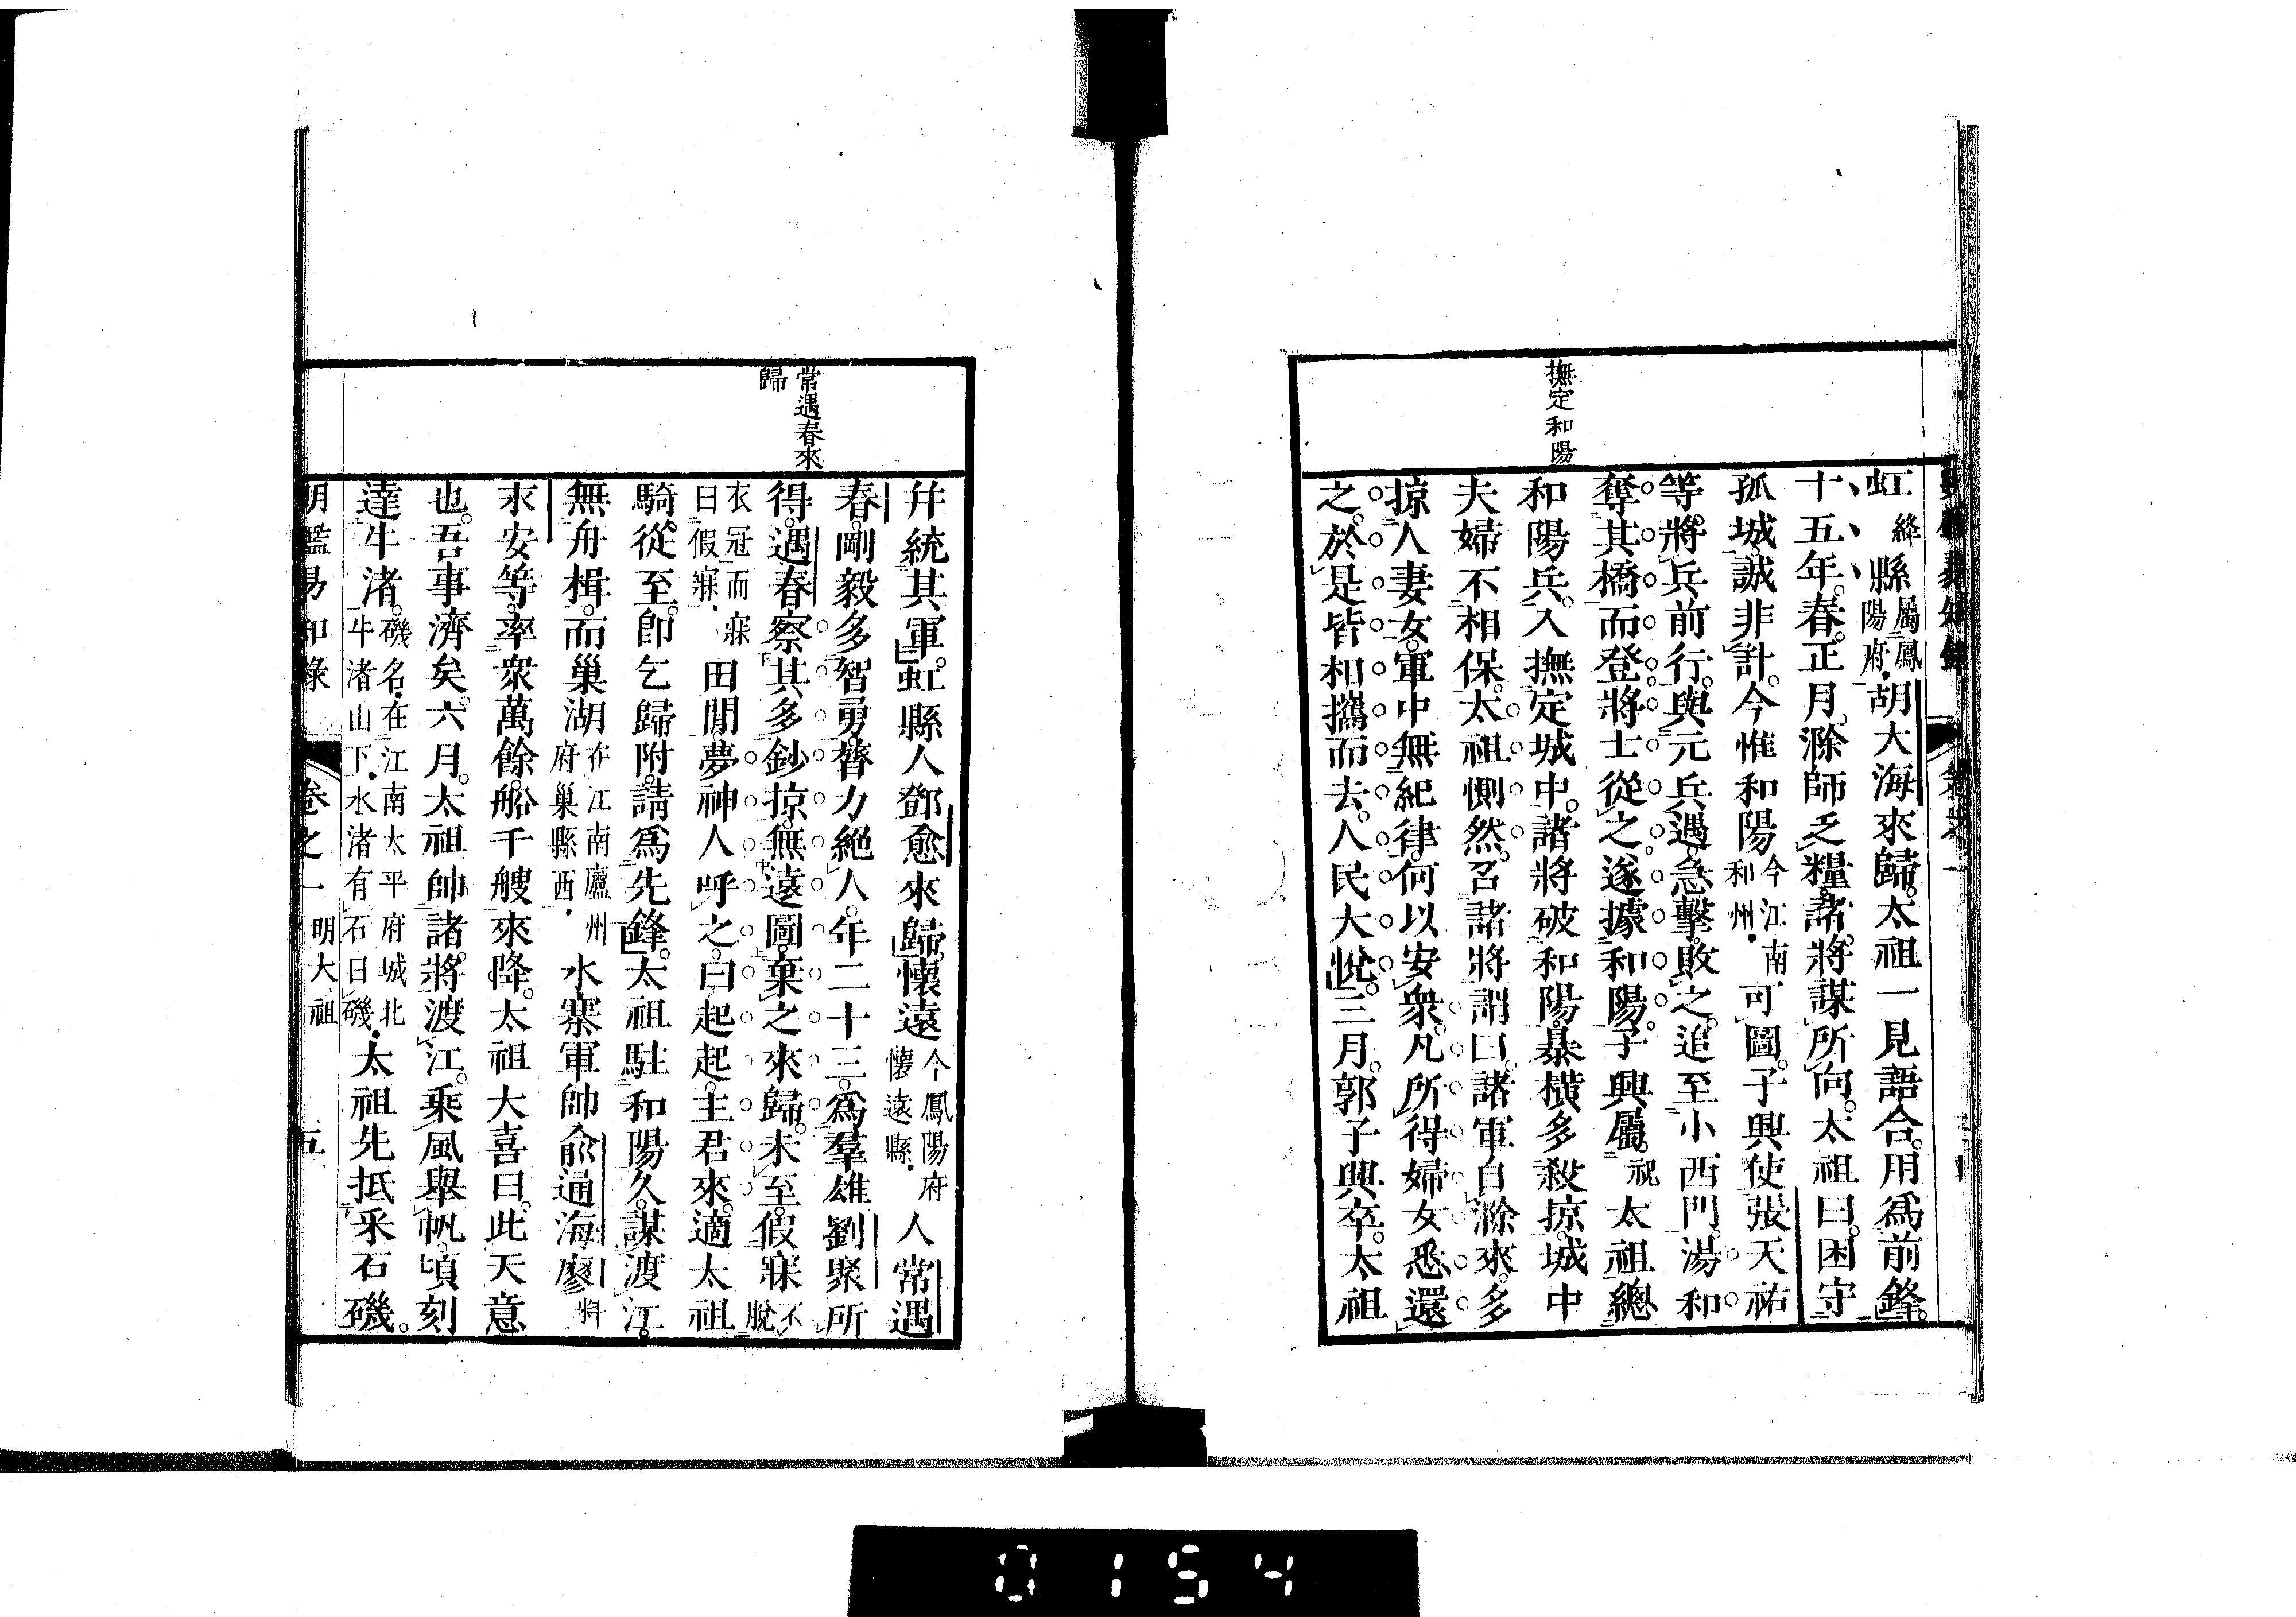 撫定和陽
虹絳縣屬鳳陽府胡大海來歸太祖一見語合用爲前鋒
十五年春正月滁師乏糧諸將謀所向太祖曰困守
孤城誠非計今惟和陽今江南和州可圖子興使張天祐
等將兵前行與元兵遇急擊敗之追至小西門湯和
奪其橋而登將士從之遂據和陽子興屬祝太祖總
和陽兵入撫定城中諸將破和陽暴橫多殺掠城中
夫婦不相保太祖惻然召諸將謂曰諸軍自滁來多
掠人妻女軍中無紀律何以安衆凡所得婦女悉還
之於是皆相攜而去人民大悅三月郭子興卒太祖
常遇春來
歸
幷統其軍虹縣人鄧愈來歸懷遠今鳳陽府懷遠縣人常遇
春剛毅多智勇膂力絕人年二十三爲羣雄劉聚所
得遇春察其多鈔掠無遠圖棄之來歸未至假寐不脫
衣冠而寐曰假寐田閒夢神人呼之曰起起主君來適太祖
騎從至卽乞歸附請爲先鋒太祖駐和陽久謀渡江
無舟楫而巢湖在江南廬州府巢縣西水寨軍帥俞通海廖料
永安等率衆萬餘船千艘來降太祖大喜曰此天意
也吾事濟矣六月太祖帥諸將渡江乘風舉帆頃刻
達牛渚磯名在江南太平府城北牛渚山下水渚有石曰磯太祖先抵采石磯
明鑑易知錄 卷之一 明太祖 五
0154